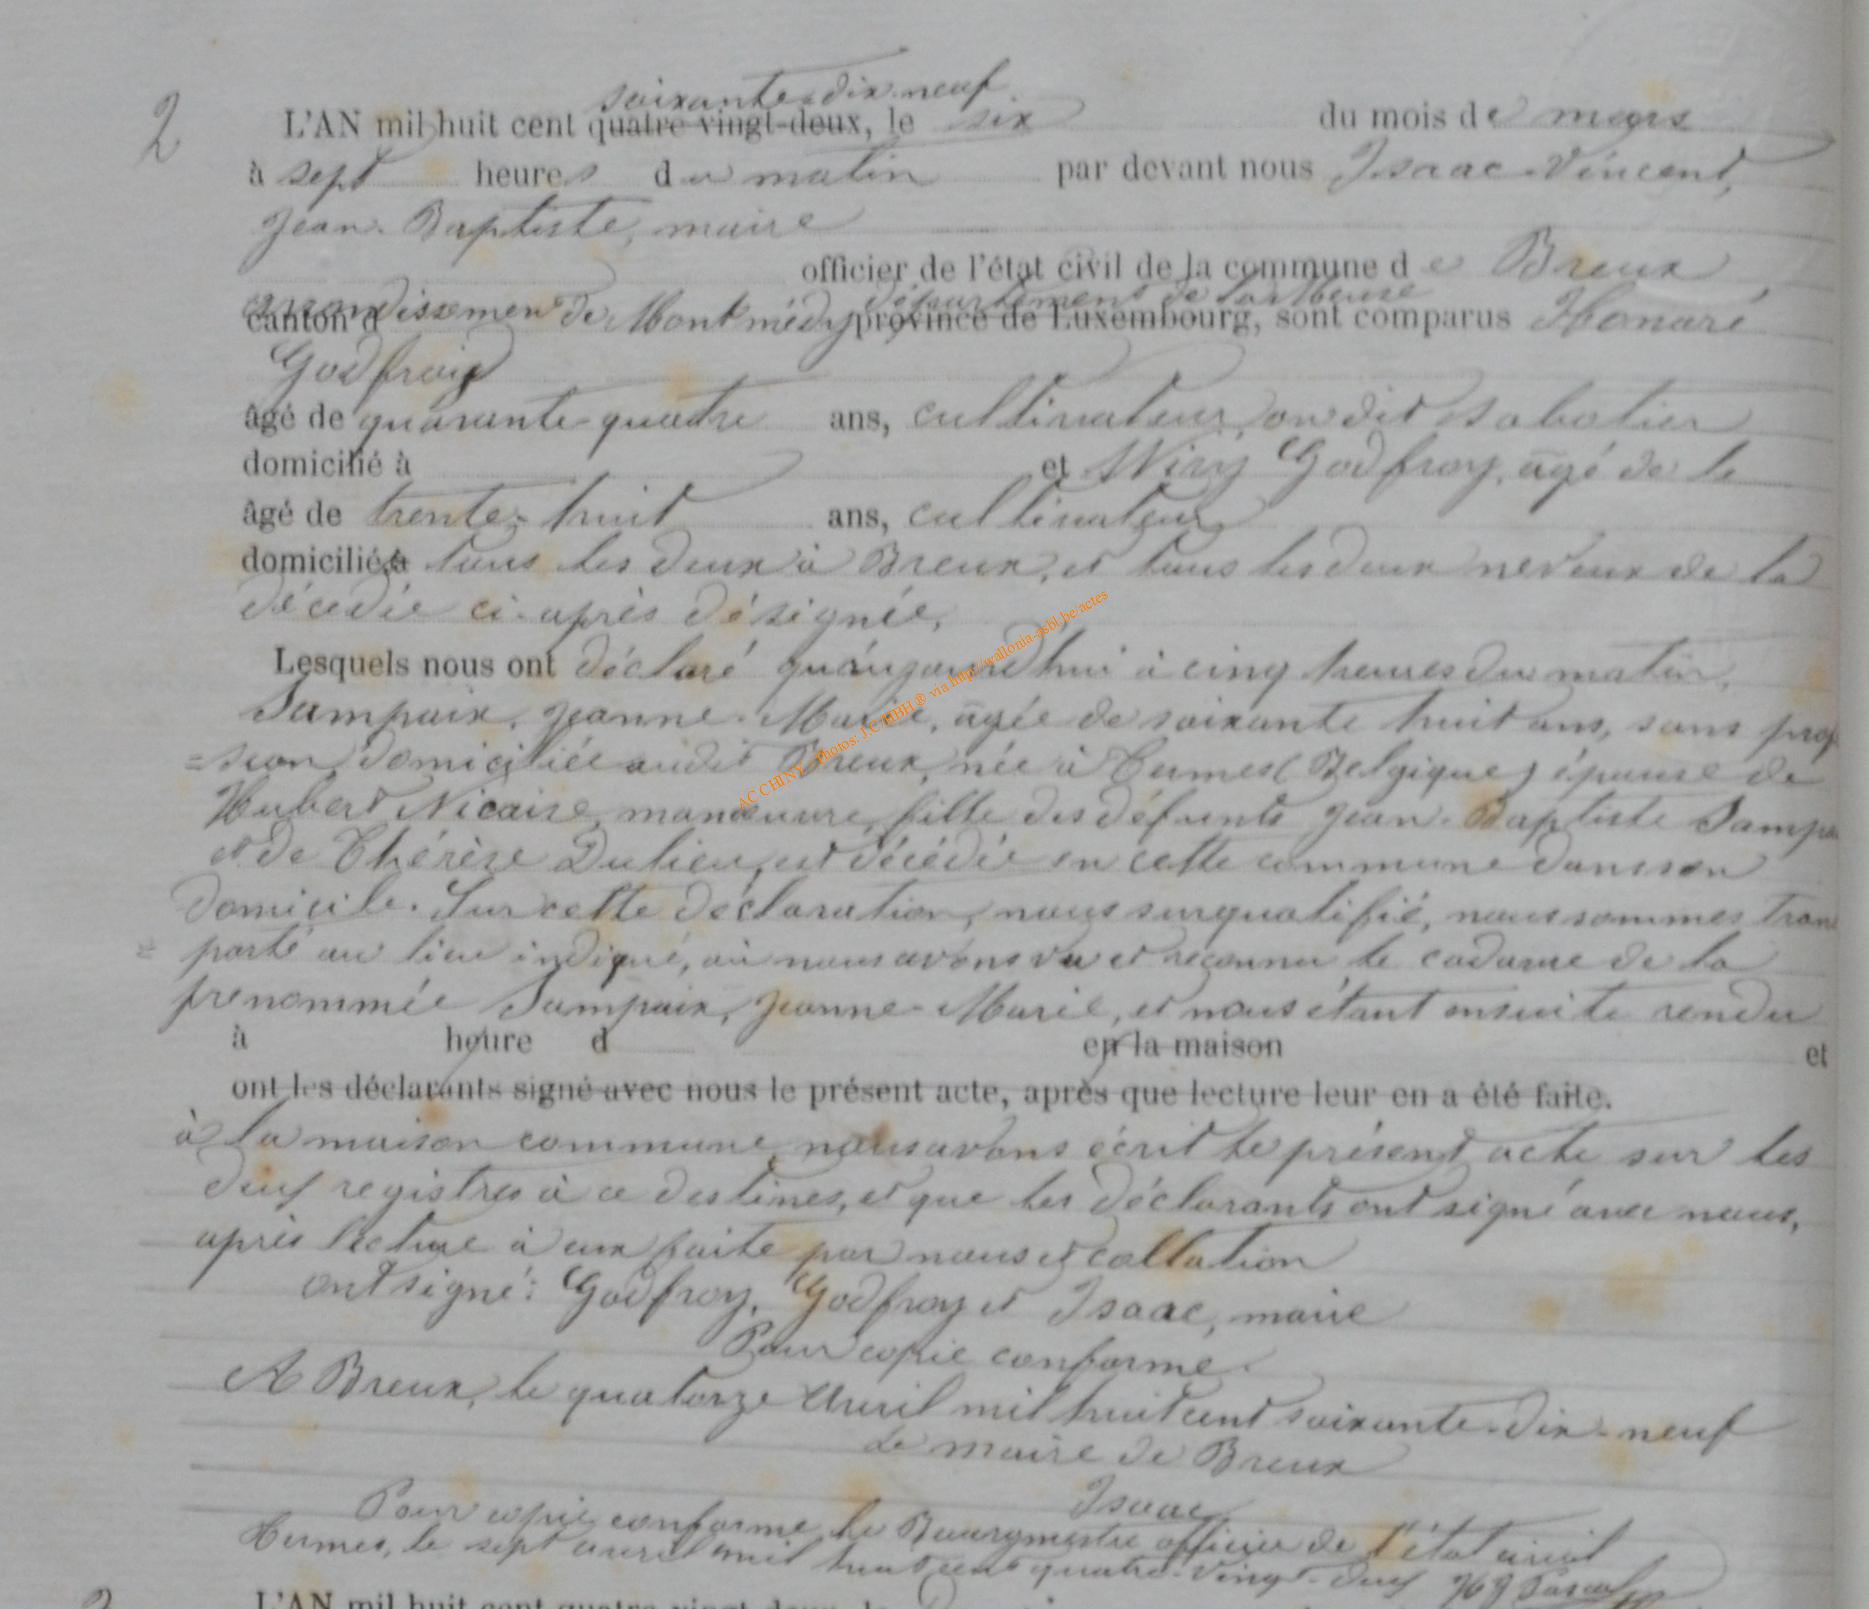 soixante-dix-neuf
2 L'AN mil huit cent quatre-vingt-deux, le six du mois de mars
à sept heures du matin par devant nous Isaac Vincent,
Jean-Baptiste, maire
officier de l'état civil de la commune de Breux
département de la Meuse
arrondissement de Montmédy
canton d province de Luxembourg, sont comparus Honoré
Godfroid
âgé de quarante-quatre ans, cultivateur, on dit sabotier
domicilié à et Wiry Godfroy, âgé de le
âgé de trente-huit ans, cultivateur
domiciliés à tous les deux à Breux, et tous les deux neveux de la
décédée ci-après désignée,
Lesquels nous ont déclaré qu'aujourd'hui à cinq heures du matin,
Sampaix, Jeanne-Marie, agée de soixante huit ans, sans prof
=sion domiciliée audit Breux, née à Termes (Belgique) épouse de
Hubert Nicaise, manœuvre, fille des défunts Jean-Baptiste Sampa
et de Thérèse Dulieu, est décédée en cette commune dans son
domicile. Sur cette déclaration, nous surqualifié, nous sommes trans
= porté au lieu indiqué, où nous avons vu et reconnu le cadavre de la
prenommée Sampaix, Jeanne-Marie, et nous étant ensuite rendu
à heure d en la maison et
ont les déclarants signé avec nous le présent acte, après que lecture leur en a été faite.
à la maison commune, nous avons écrit le présent acte sur les
deux registres à ce destinés, et que les déclarants ont signé avec nous,
après lecture à eux faite par nous et collation
ont signé: Godfroy, Godfroy et Isaac, maire
Pour copie conforme
A Breux, le quatorze Avril mil huit cent soixante-dix-neuf
Le maire de Breux
Isaac
Pour copie conforme, le Bourgmestre officier de l'état civil
Termes, le sept avril mil huit cent quatre-vingt-deux
AC CHINY - Photos: J.C. via http://wallonia-asbl.be/actes
L'AN mil huit cent quatre-vingt-deux, le